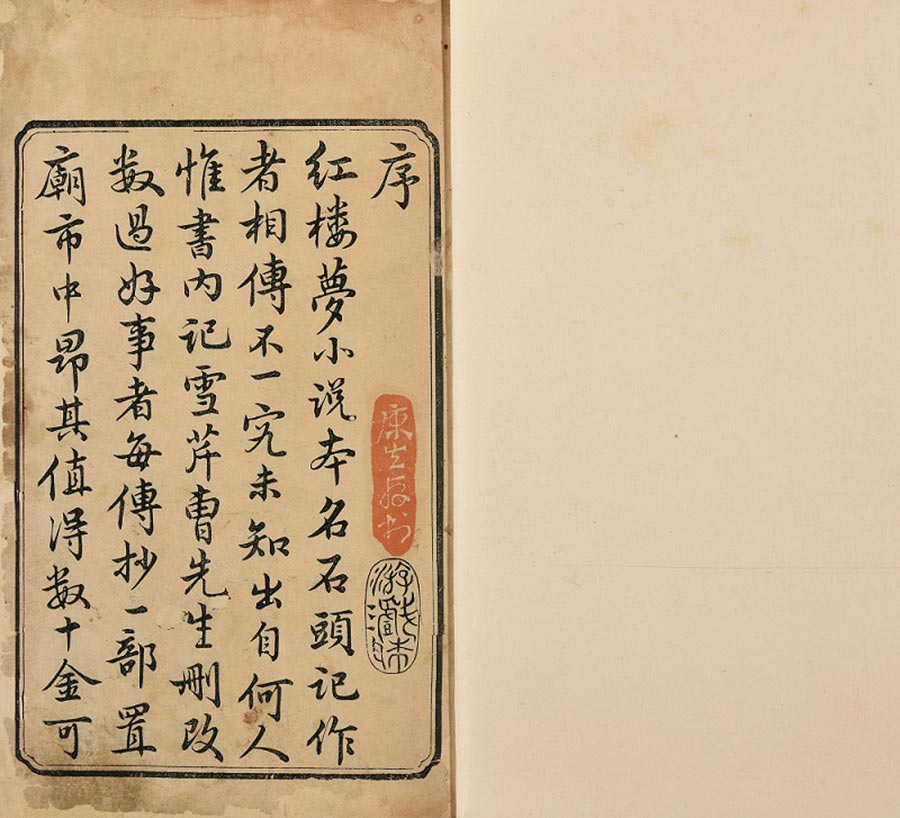 序
红楼夢小说本名石頭记作
者相傳不一究未知出自何人
惟書内记雪芹曹先生删改
数過好事者每傳抄一部置
廟市中昂其值得数十金可
康生存书